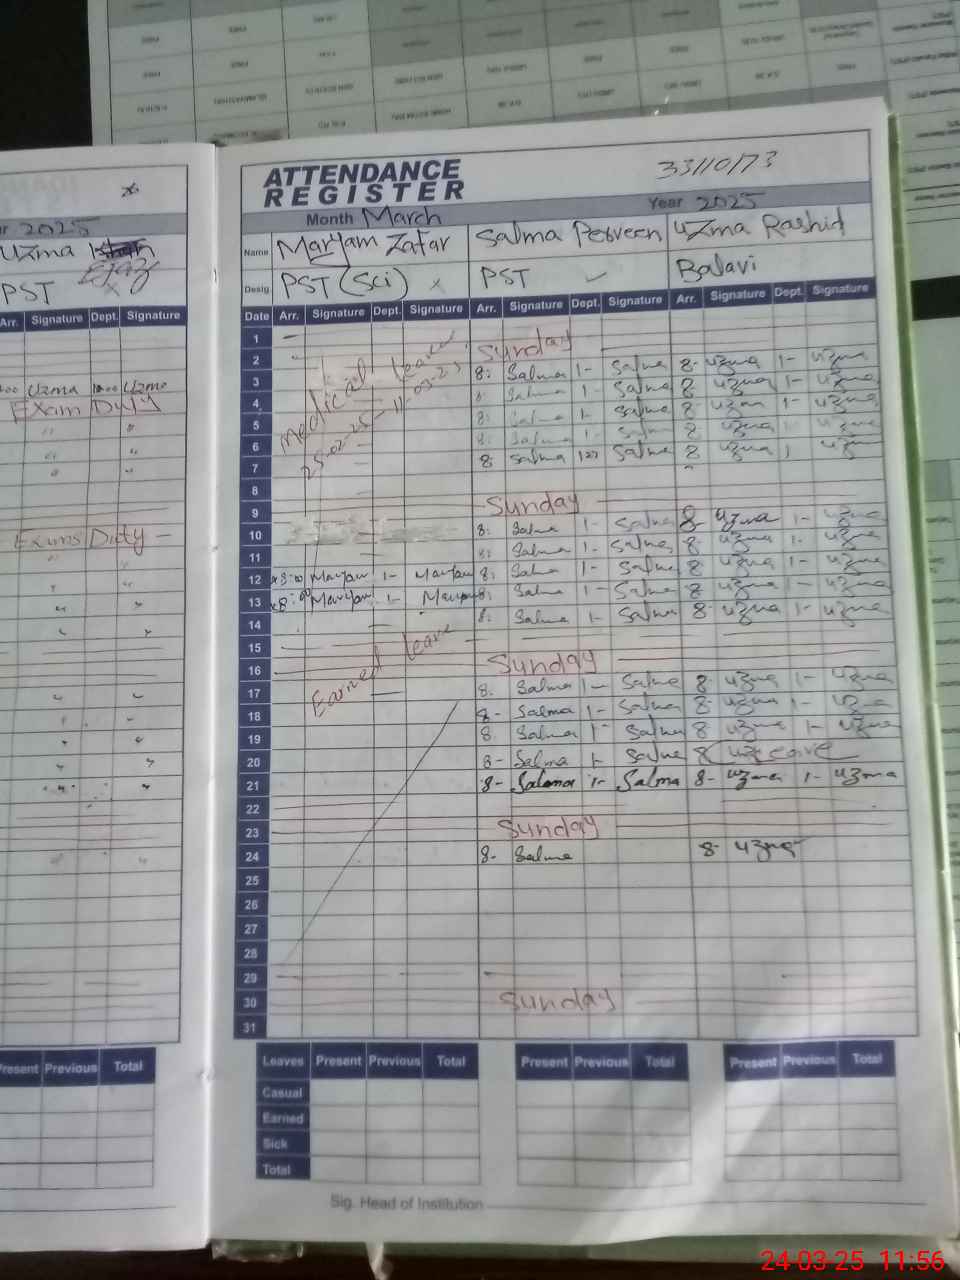 ATTENDANCE
REGISTER
33110173
Month March Year 2025
Name Maryam Zafar Salma Perveen Uzma Rashid
Desig. PST (Sci) x PST ✓ Balavi
Date Arr. Signature Dept. Signature Arr. Signature Dept. Signature Arr. Signature Dept. Signature
1
2 Sunday
3 8: Salma 1- Salma 8- uzma 1- uzma
4 8: Salma 1- Salma 8 uzma 1- uzma
5 8: Salma 1- Salma 8 uzma 1- uzma
6 8: Salma 1- Salma 8 uzma 1- uzma
7 8 Salma Salma 8 uzma
Medical leave
25-02-25 - 11-03-25
8
9 Sunday
10 8: Salma 1- Salma 8- uzma 1- uzma
11 8: Salma 1- Salma 8 uzma 1- uzma
12 8:00 Maryam 1- Maryam 8: Salma 1- Salma 8 uzma 1- uzma
13 8:00 Maryam 1- Maryam 8: Salma 1- Salma 8 uzma 1- uzma
14 8: Salma 1- Salma 8- uzma 1- uzma
15
16 Sunday
Earned leave
17 8: Salma 1- Salma 8- uzma 1- uzma
18 8- Salma 1- Salma 8- uzma 1- uzma
19 8. Salma 1- Salma 8 uzma 1- uzma
20 8- Salma 1- Salma 8 Leave
21 8- Salma 1- Salma 8- uzma 1- uzma
22
23 Sunday
24 8- Salma 8- uzma
25
26
27
28
29
30 Sunday
31
Leaves Present Previous Total Present Previous Total Present Previous Total
Casual
Earned
Sick
Total
Sig. Head of Institution
2025
Uzma
Ejaz
PST x
Arr. Signature Dept. Signature
Uzma Uzma
Exam Duty
Exams Duty
Present Previous Total
24-03-25 11:56